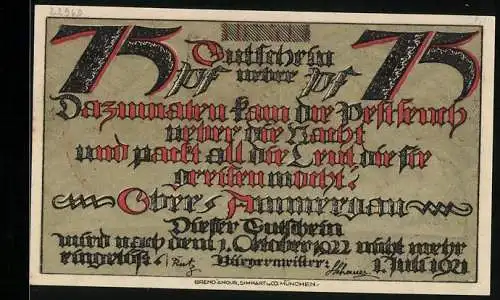 75 Gutschein 75
Pf ueber Pf
Dazumalen kam die Pestseuch
ueber die Nacht
und packt all die Leut die sie
greifen mocht:
Ober-Ammergau
Dieser Gutschein
wird nach dem 1. Oktober 1922 nicht mehr
eingelöst. Rutz Bürgermeister: 1. Juli 1921
MÜNCHEN.